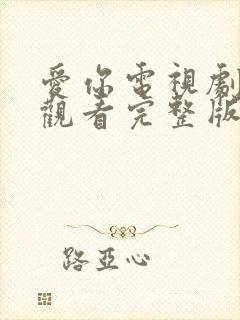 愛你電視劇
觀看完整版
路亞心